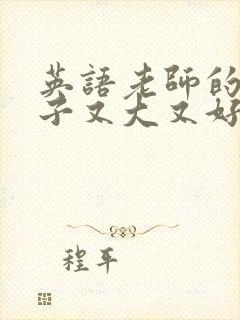 英語老師的
子又大又好
程平